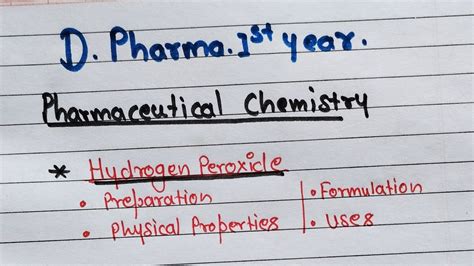 D. Pharma. 1st year.
Pharmaceutical Chemistry
* Hydrogen Peroxide
• Preparation
• Physical Properties
• Formulation
• uses